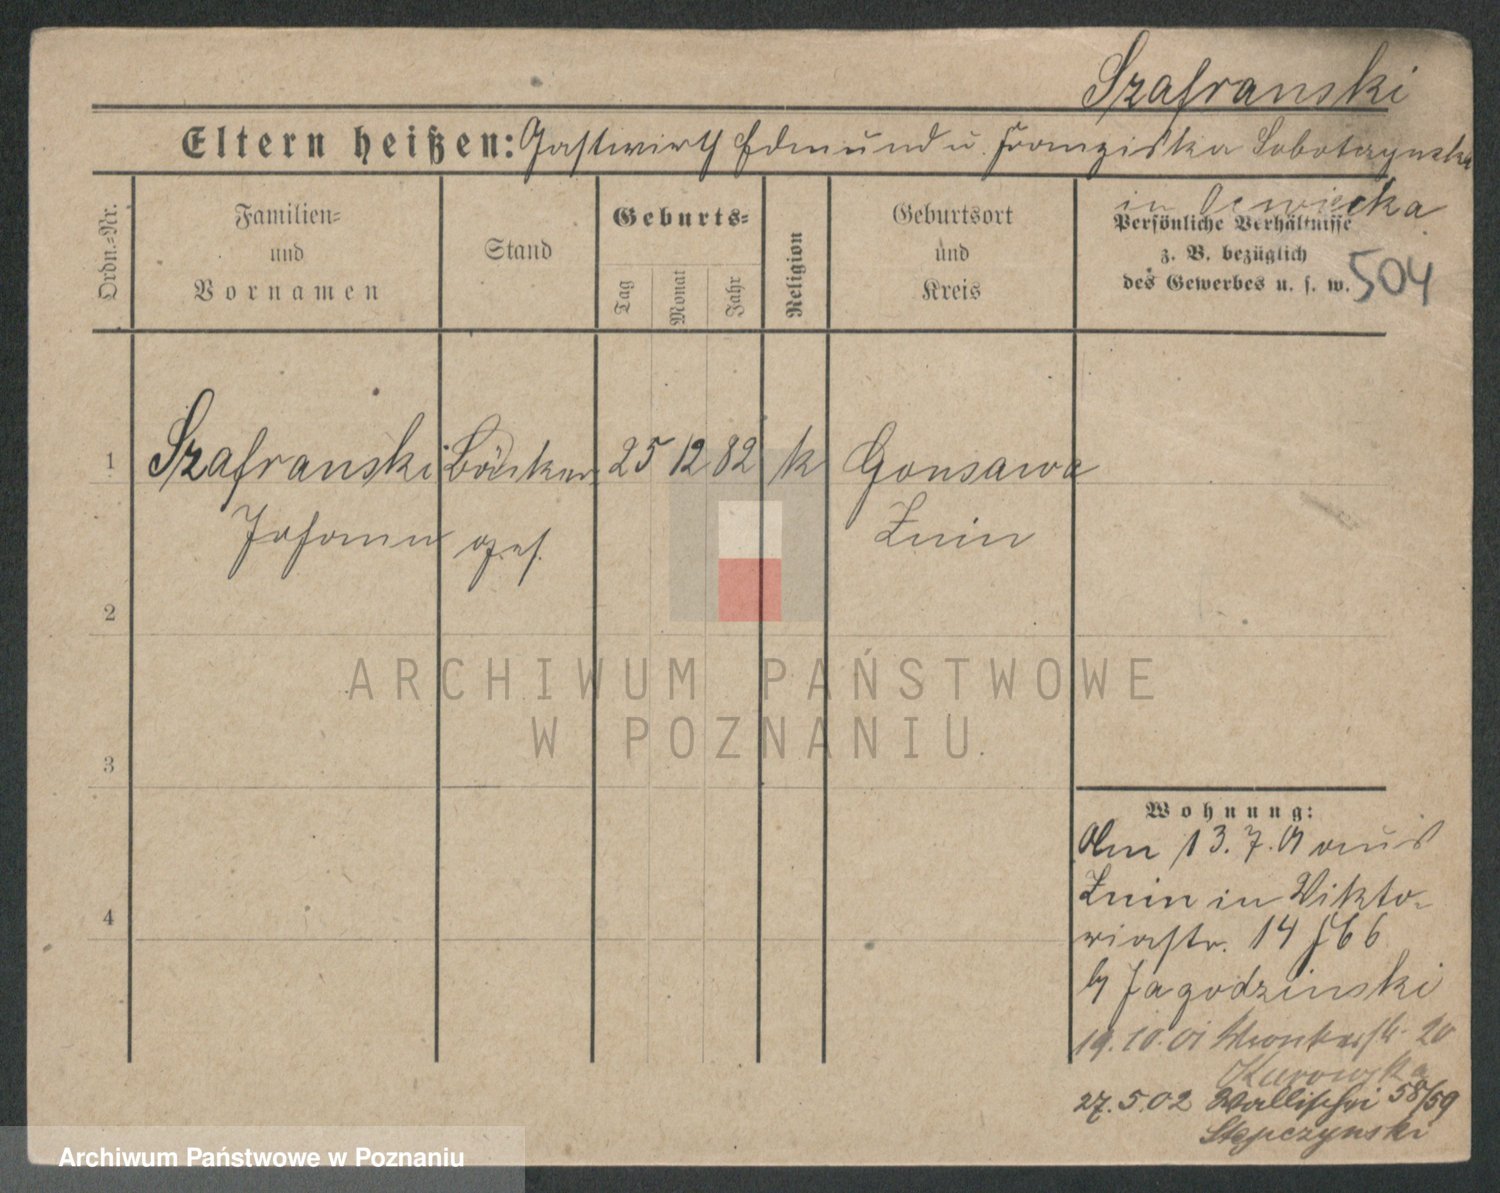 Szafranski
Eltern heißen: Gastwirth Edmund u. Franziska Sobotzynska
in
Ordn.=Nr.
Familien=
und
Vornamen
Stand
Geburts=
Tag
Monat
Jahr
Religion
Geburtsort
und
Kreis
Persönliche Verhältnisse
z. B. bezüglich
des Gewerbes u. s. w.
504
1
Szafranski Bäcker 25 12 82 k Gonsawa
Johann ges. Znin
2
ARCHIWUM PAŃSTWOWE
W POZNANIU
3
Wohnung:
Am 13.7.01 aus
Znin in Vikto-
riastr. 14
4
b/ Jagodzinski
19.10.01 Wronkerstr. 20
Kurowska
27.5.02 Wallischei 58/59
Stepczynski
Archiwum Państwowe w Poznaniu